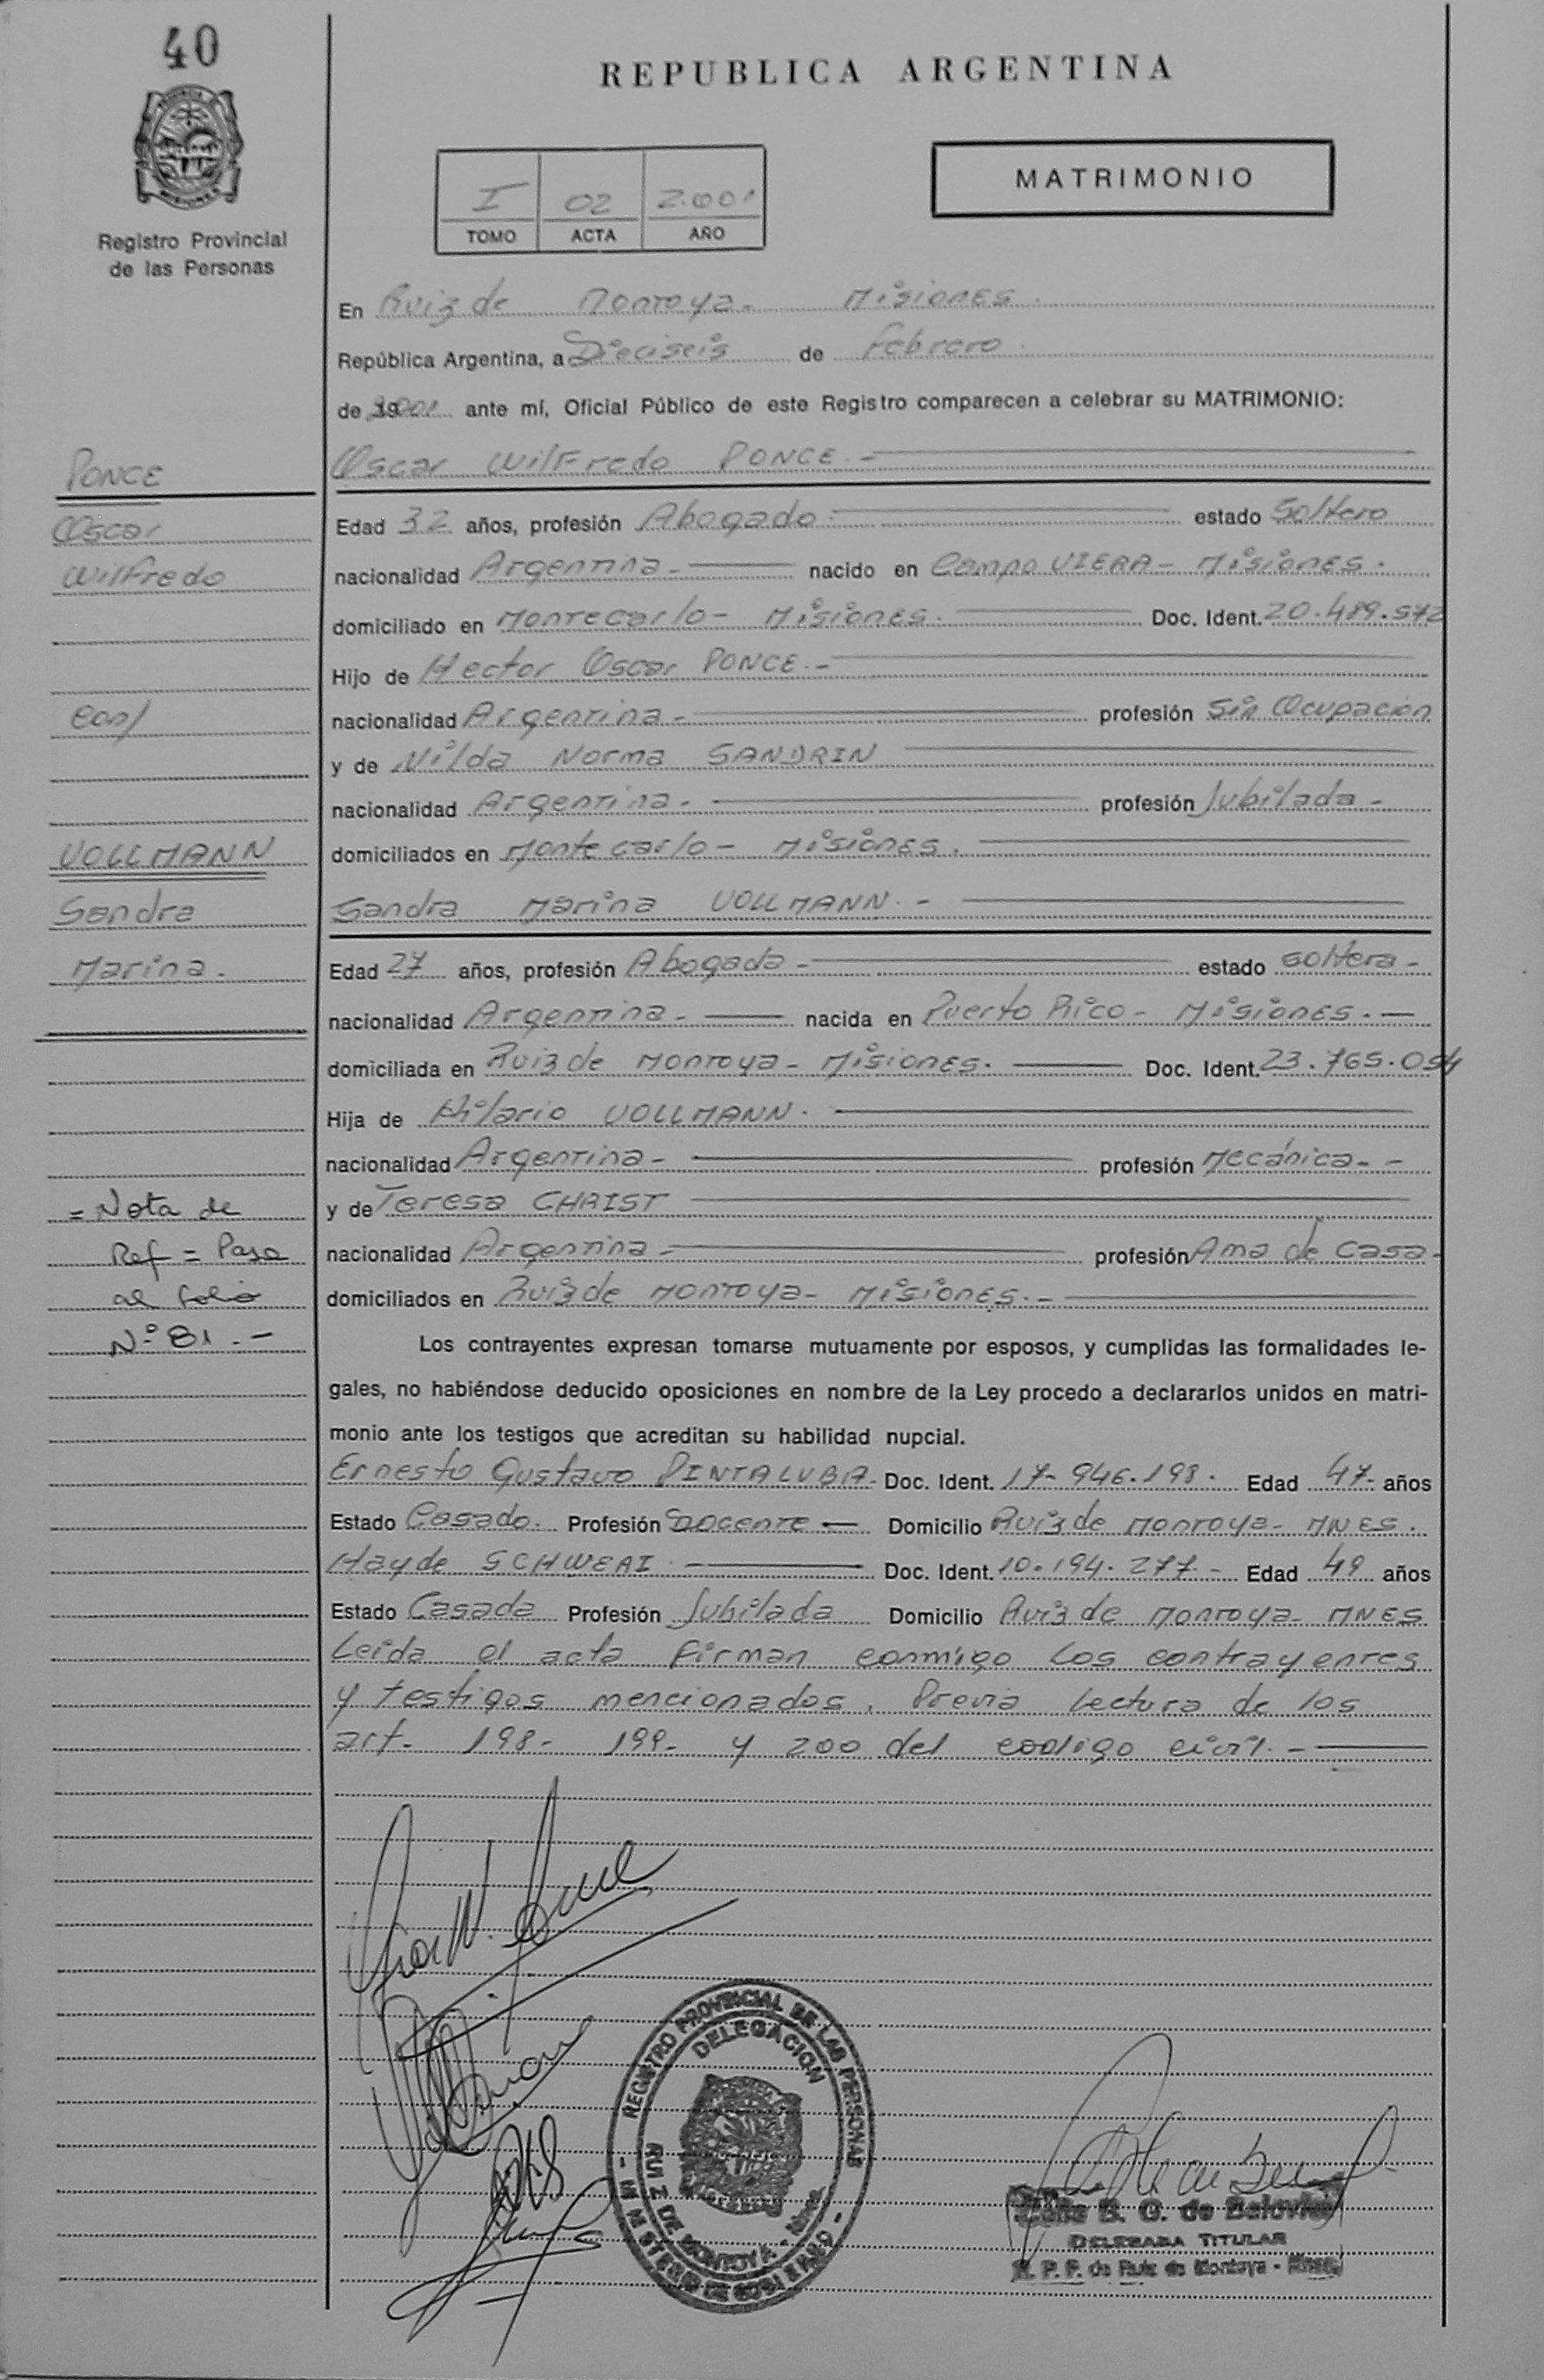 40
REPUBLICA ARGENTINA
MATRIMONIO
I 02 2.001
TOMO ACTA AÑO
Registro Provincial
de las Personas
En Ruiz de Montoya - Misiones.
República Argentina, a Dieciseis de Febrero.
de 2001 ante mí, Oficial Público de este Registro comparecen a celebrar su MATRIMONIO:
PONCE
Oscar
Wilfredo
con/
VOLLMANN
Sandra
Marina.
= Nota de
Ref = Pasa
al folio
Nº 81.-
Oscar Wilfredo PONCE.-
Edad 32 años, profesión Abogado. estado Soltero
nacionalidad Argentina.- nacido en Campo VIERA - Misiones.
domiciliado en Montecarlo - Misiones. Doc. Ident. 20.489.572
Hijo de Hector Oscar PONCE.-
nacionalidad Argentina.- profesión Sin Ocupación
y de Nilda Norma SANDRIN
nacionalidad Argentina.- profesión Jubilada -
domiciliados en Montecarlo - Misiones.
Sandra Marina VOLLMANN.-
Edad 27 años, profesión Abogada - estado soltera -
nacionalidad Argentina.- nacida en Puerto Rico - Misiones.-
domiciliada en Ruiz de Montoya - Misiones. Doc. Ident. 23.765.054
Hija de Hilario VOLLMANN.
nacionalidad Argentina - profesión Mecánica.-
y de Teresa CHRIST
nacionalidad Argentina - profesión Ama de Casa -
domiciliados en Ruiz de Montoya - Misiones.-
Los contrayentes expresan tomarse mutuamente por esposos, y cumplidas las formalidades le-
gales, no habiéndose deducido oposiciones en nombre de la Ley procedo a declararlos unidos en matri-
monio ante los testigos que acreditan su habilidad nupcial.
Ernesto Gustavo PINTALUBA - Doc. Ident. 17.946.198. Edad 47 años
Estado Casado. Profesión Docente - Domicilio Ruiz de Montoya - MNES.
Hayde SCHWERI.- Doc. Ident. 10.194.277.- Edad 49 años
Estado Casada Profesión Jubilada Domicilio Ruiz de Montoya - MNES
Leida el acta firman conmigo los contrayentes
y testigos mencionados. Previa lectura de los
art. 198- 199- y 200 del codigo civil.-
REGISTRO PROVINCIAL DE LAS PERSONAS
DELEGACION
RUIZ DE MONTOYA - Mnes.
- MINISTERIO DE GOBIERNO -
B. G. de
DELEGADA TITULAR
R. P. P. de Ruiz de Montoya - Mnes.